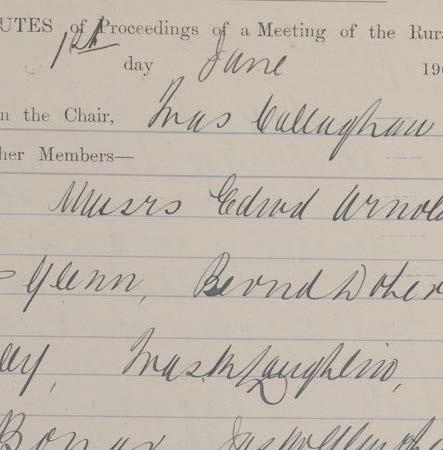 UTES of Proceedings of a Meeting of the Rura
1st day June 190
n the Chair, Thos Callaghan
her Members—
Messrs Edwd Arnold
Glenn, Bernd Doher
ey, Thas McLaughlin,
Bonar